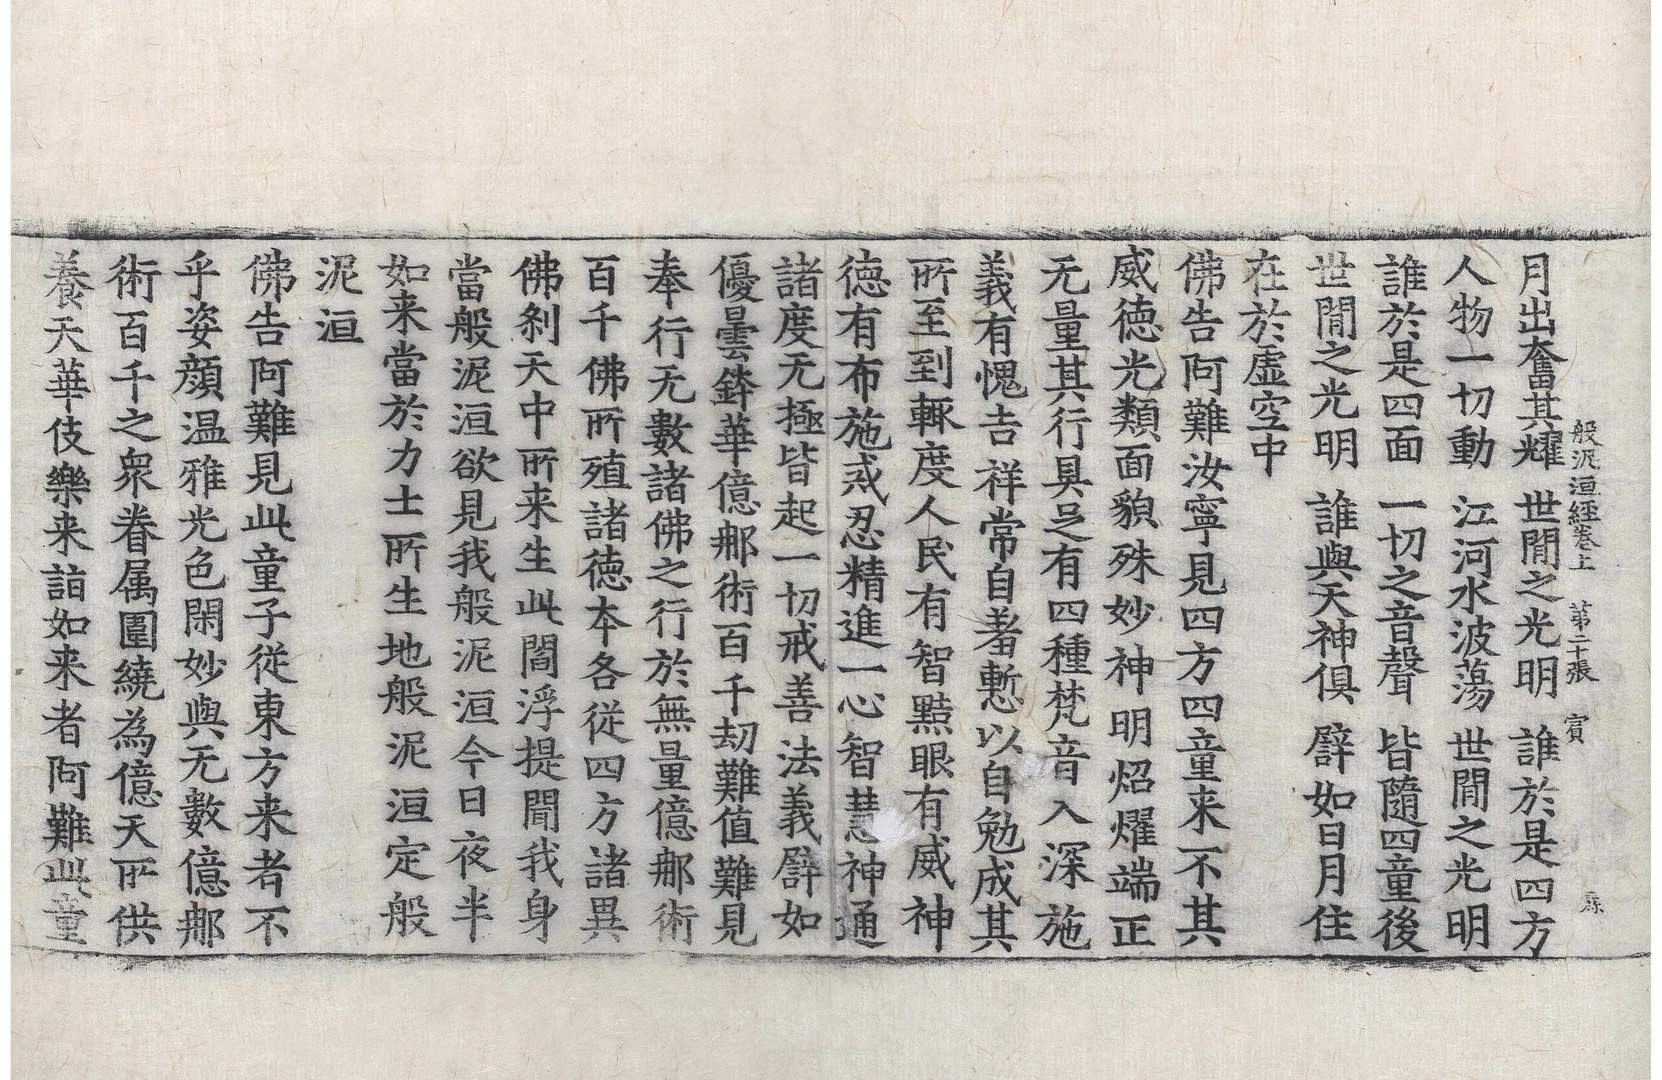 般泥洹経卷上　第二十張　賓
月出奮其耀　世閒之光明　誰於是四方
人物一切動　江河水波蕩　世閒之光明
誰於是四面　一切之音聲　皆隨四童後
世閒之光明　誰與天神俱　譬如日月住
在於虛空中
佛告阿難汝寧見四方四童来不其
威德光類面貌殊妙神明炤燿端正
无量其行具足有四種梵音入深施
義有愧吉祥常自羞慙以自勉成其
所至到輒度人民有智黠眼有威神
德有布施戒忍精進一心智慧神通
諸度无極皆起一切戒善法義譬如
優曇鉢華億那術百千劫難值難見
奉行无數諸佛之行於無量億那術
百千佛所殖諸德本各從四方諸異
佛剎天中所来生此閻浮提聞我身
當般泥洹欲見我般泥洹今日夜半
如来當於力士所生地般泥洹定般
泥洹
佛告阿難見此童子從東方来者不
乎姿顔温雅光色閑妙與无數億那
術百千之衆眷属圍繞為億天所供
養天華伎樂来詣如来者阿難此童